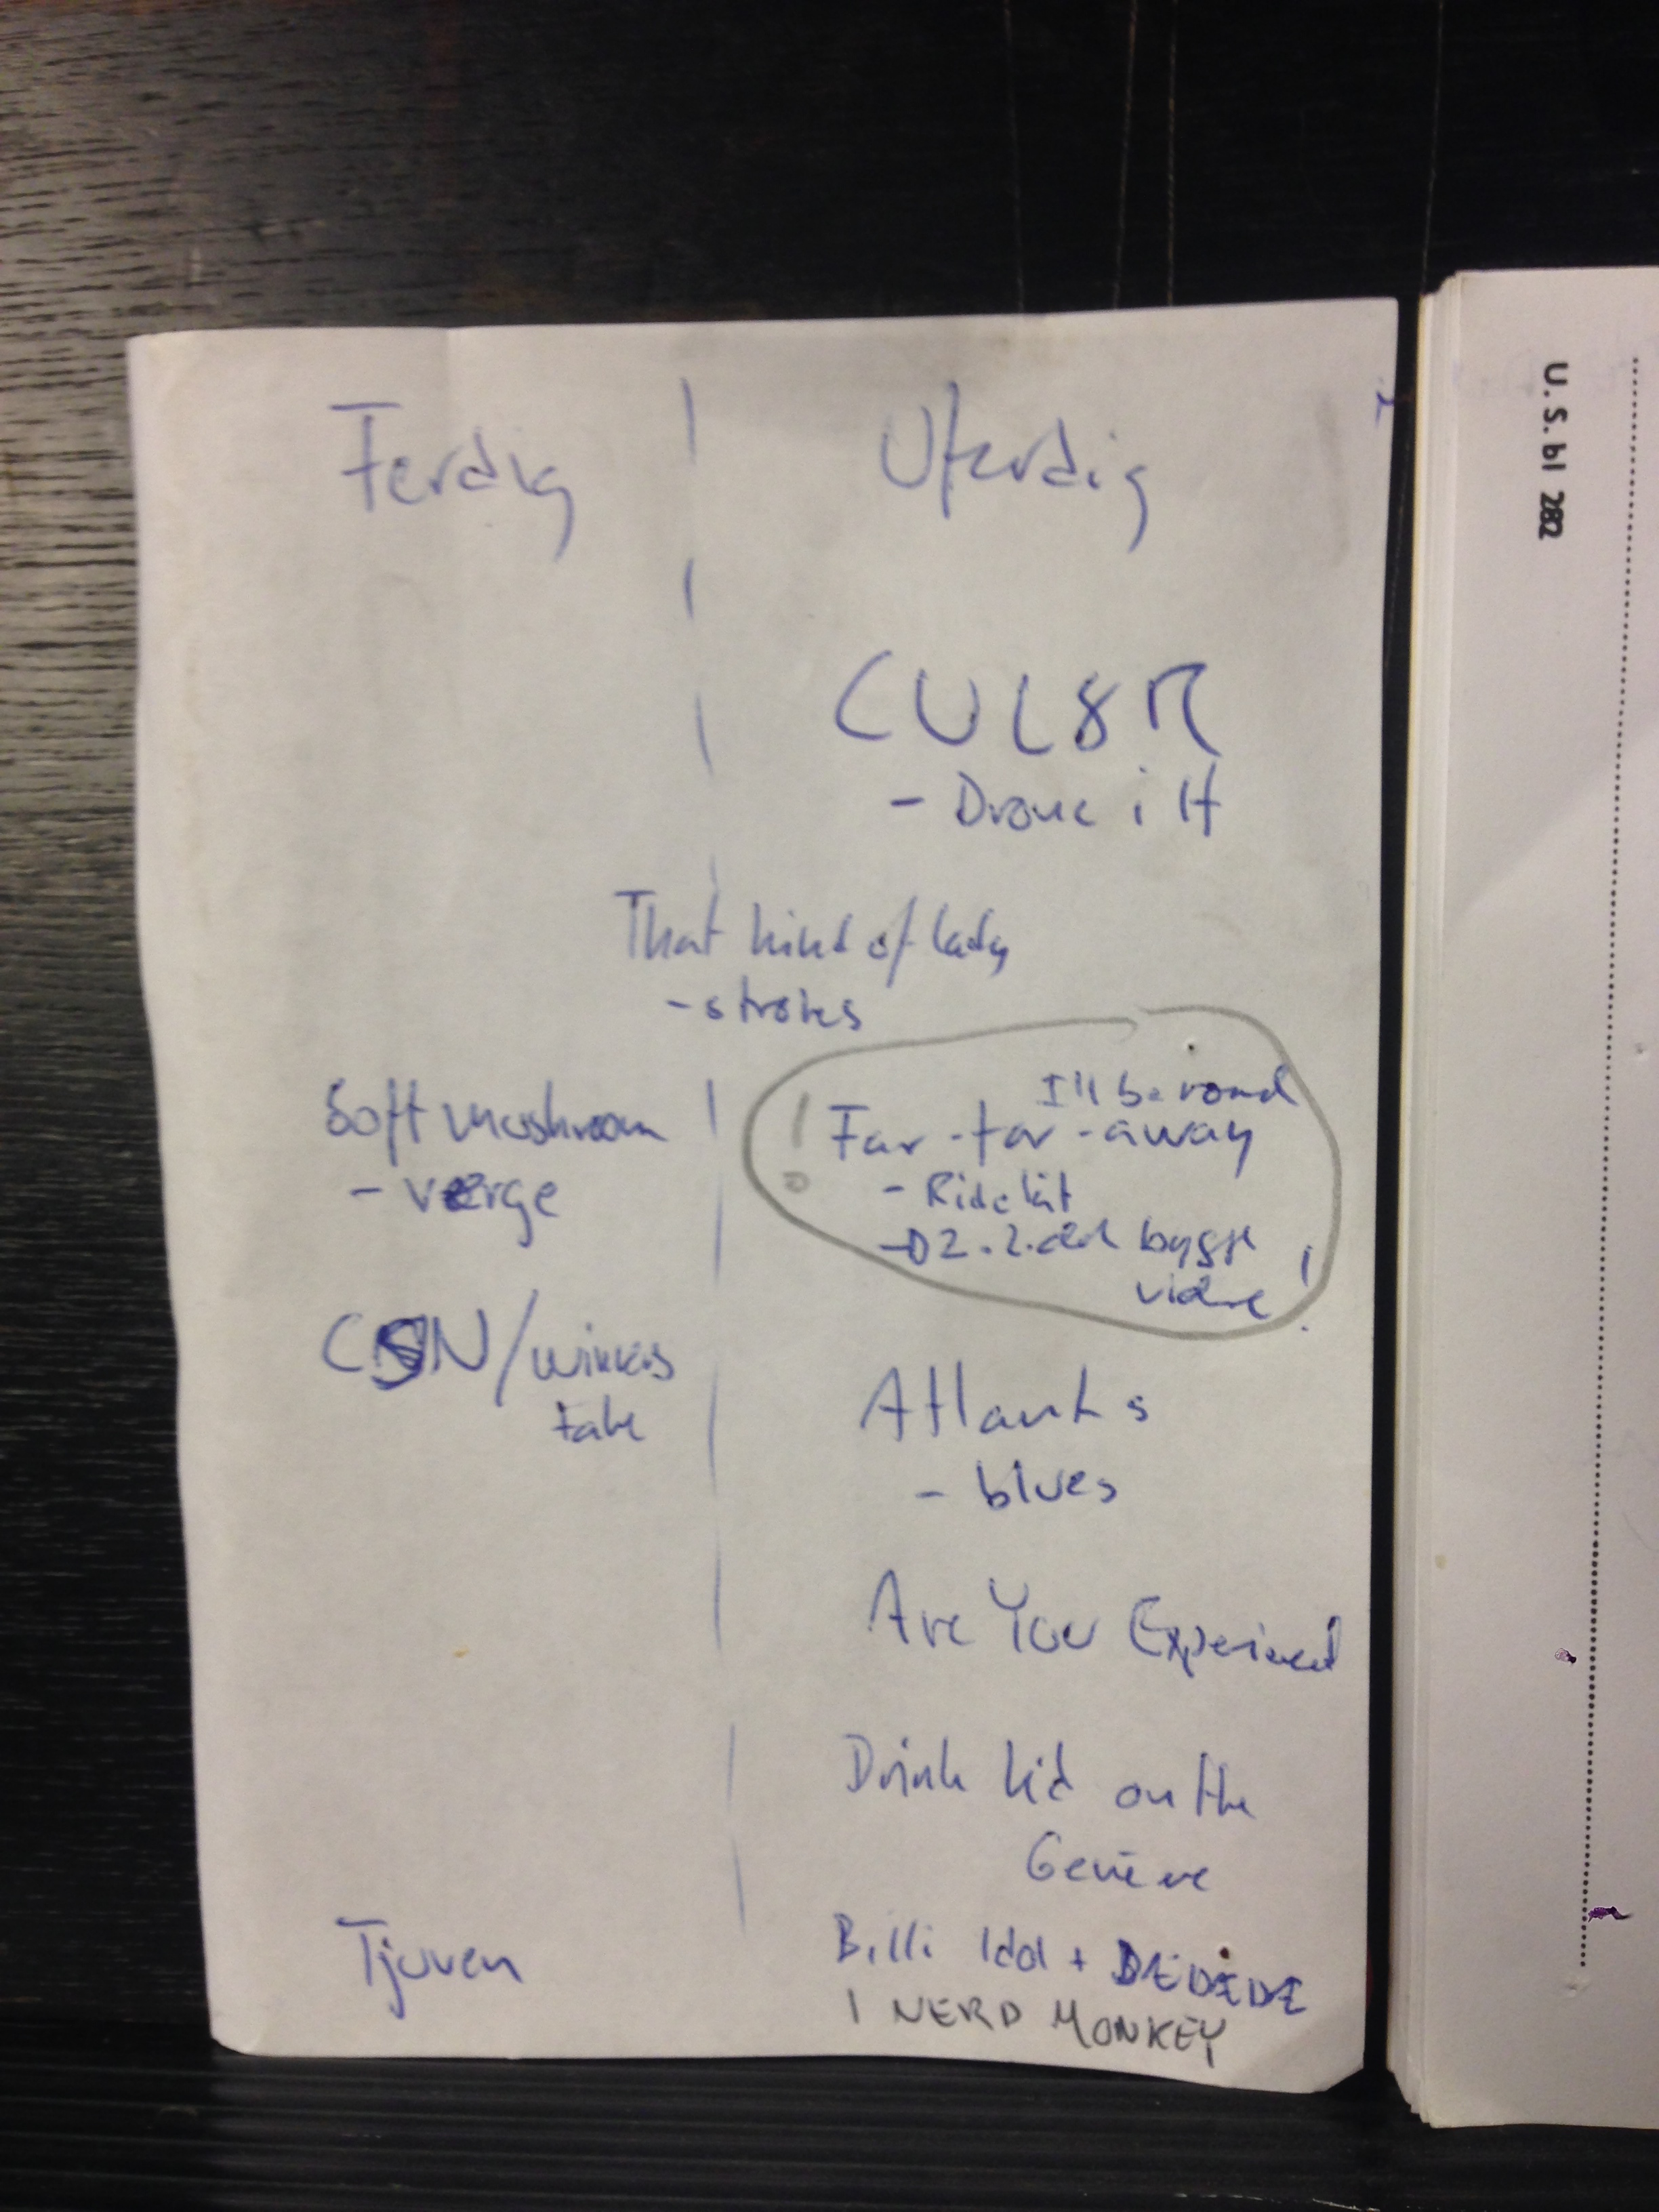 Ferdig
Uferdig
CUL8R
- Drone i H
That kind of lady
- strokes
Soft mushroom
- verge
CSN/
take
I'll be round
! Far-far-away
- Ride
2. bygge
videre !
Atlantis
- blues
Are You Experienced
Drink kid on the
Genève
Tjuven
Billi Idol + DEDEDE
I NERD MONKEY
U.S. bl 282